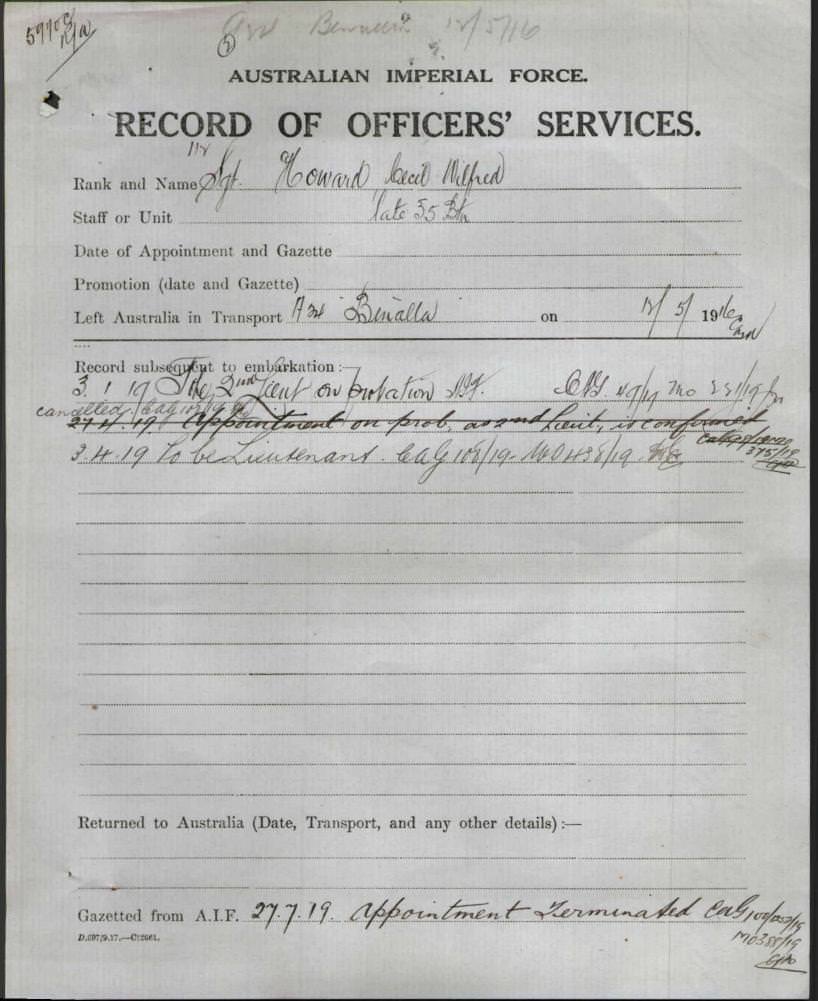 59703
N/A
A 24 12/5/16
AUSTRALIAN IMPERIAL FORCE.
RECORD OF OFFICERS' SERVICES.
Rank and Name Sgt. Howard Cecil Wilfred
Staff or Unit late 55 Btn
Date of Appointment and Gazette
Promotion (date and Gazette)
Left Australia in Transport A 24 Benalla on 12/5/1916
Record subsequent to embarkation:—
3 1 19 To be 2nd Lieut on probation CAG 49/19 MO 221/19
cancelled CAG 102/19
27.4.19. Appointment on prob. as 2nd Lieut, is confirmed
375/19
3.4.19 To be Lieutenant. CAG 108/19 - MO 435/19
Returned to Australia (Date, Transport, and any other details):—
Gazetted from A.I.F. 27.7.19. Appointment Terminated CAG 100/19
D.697/9.17.—C12661. MO388/19